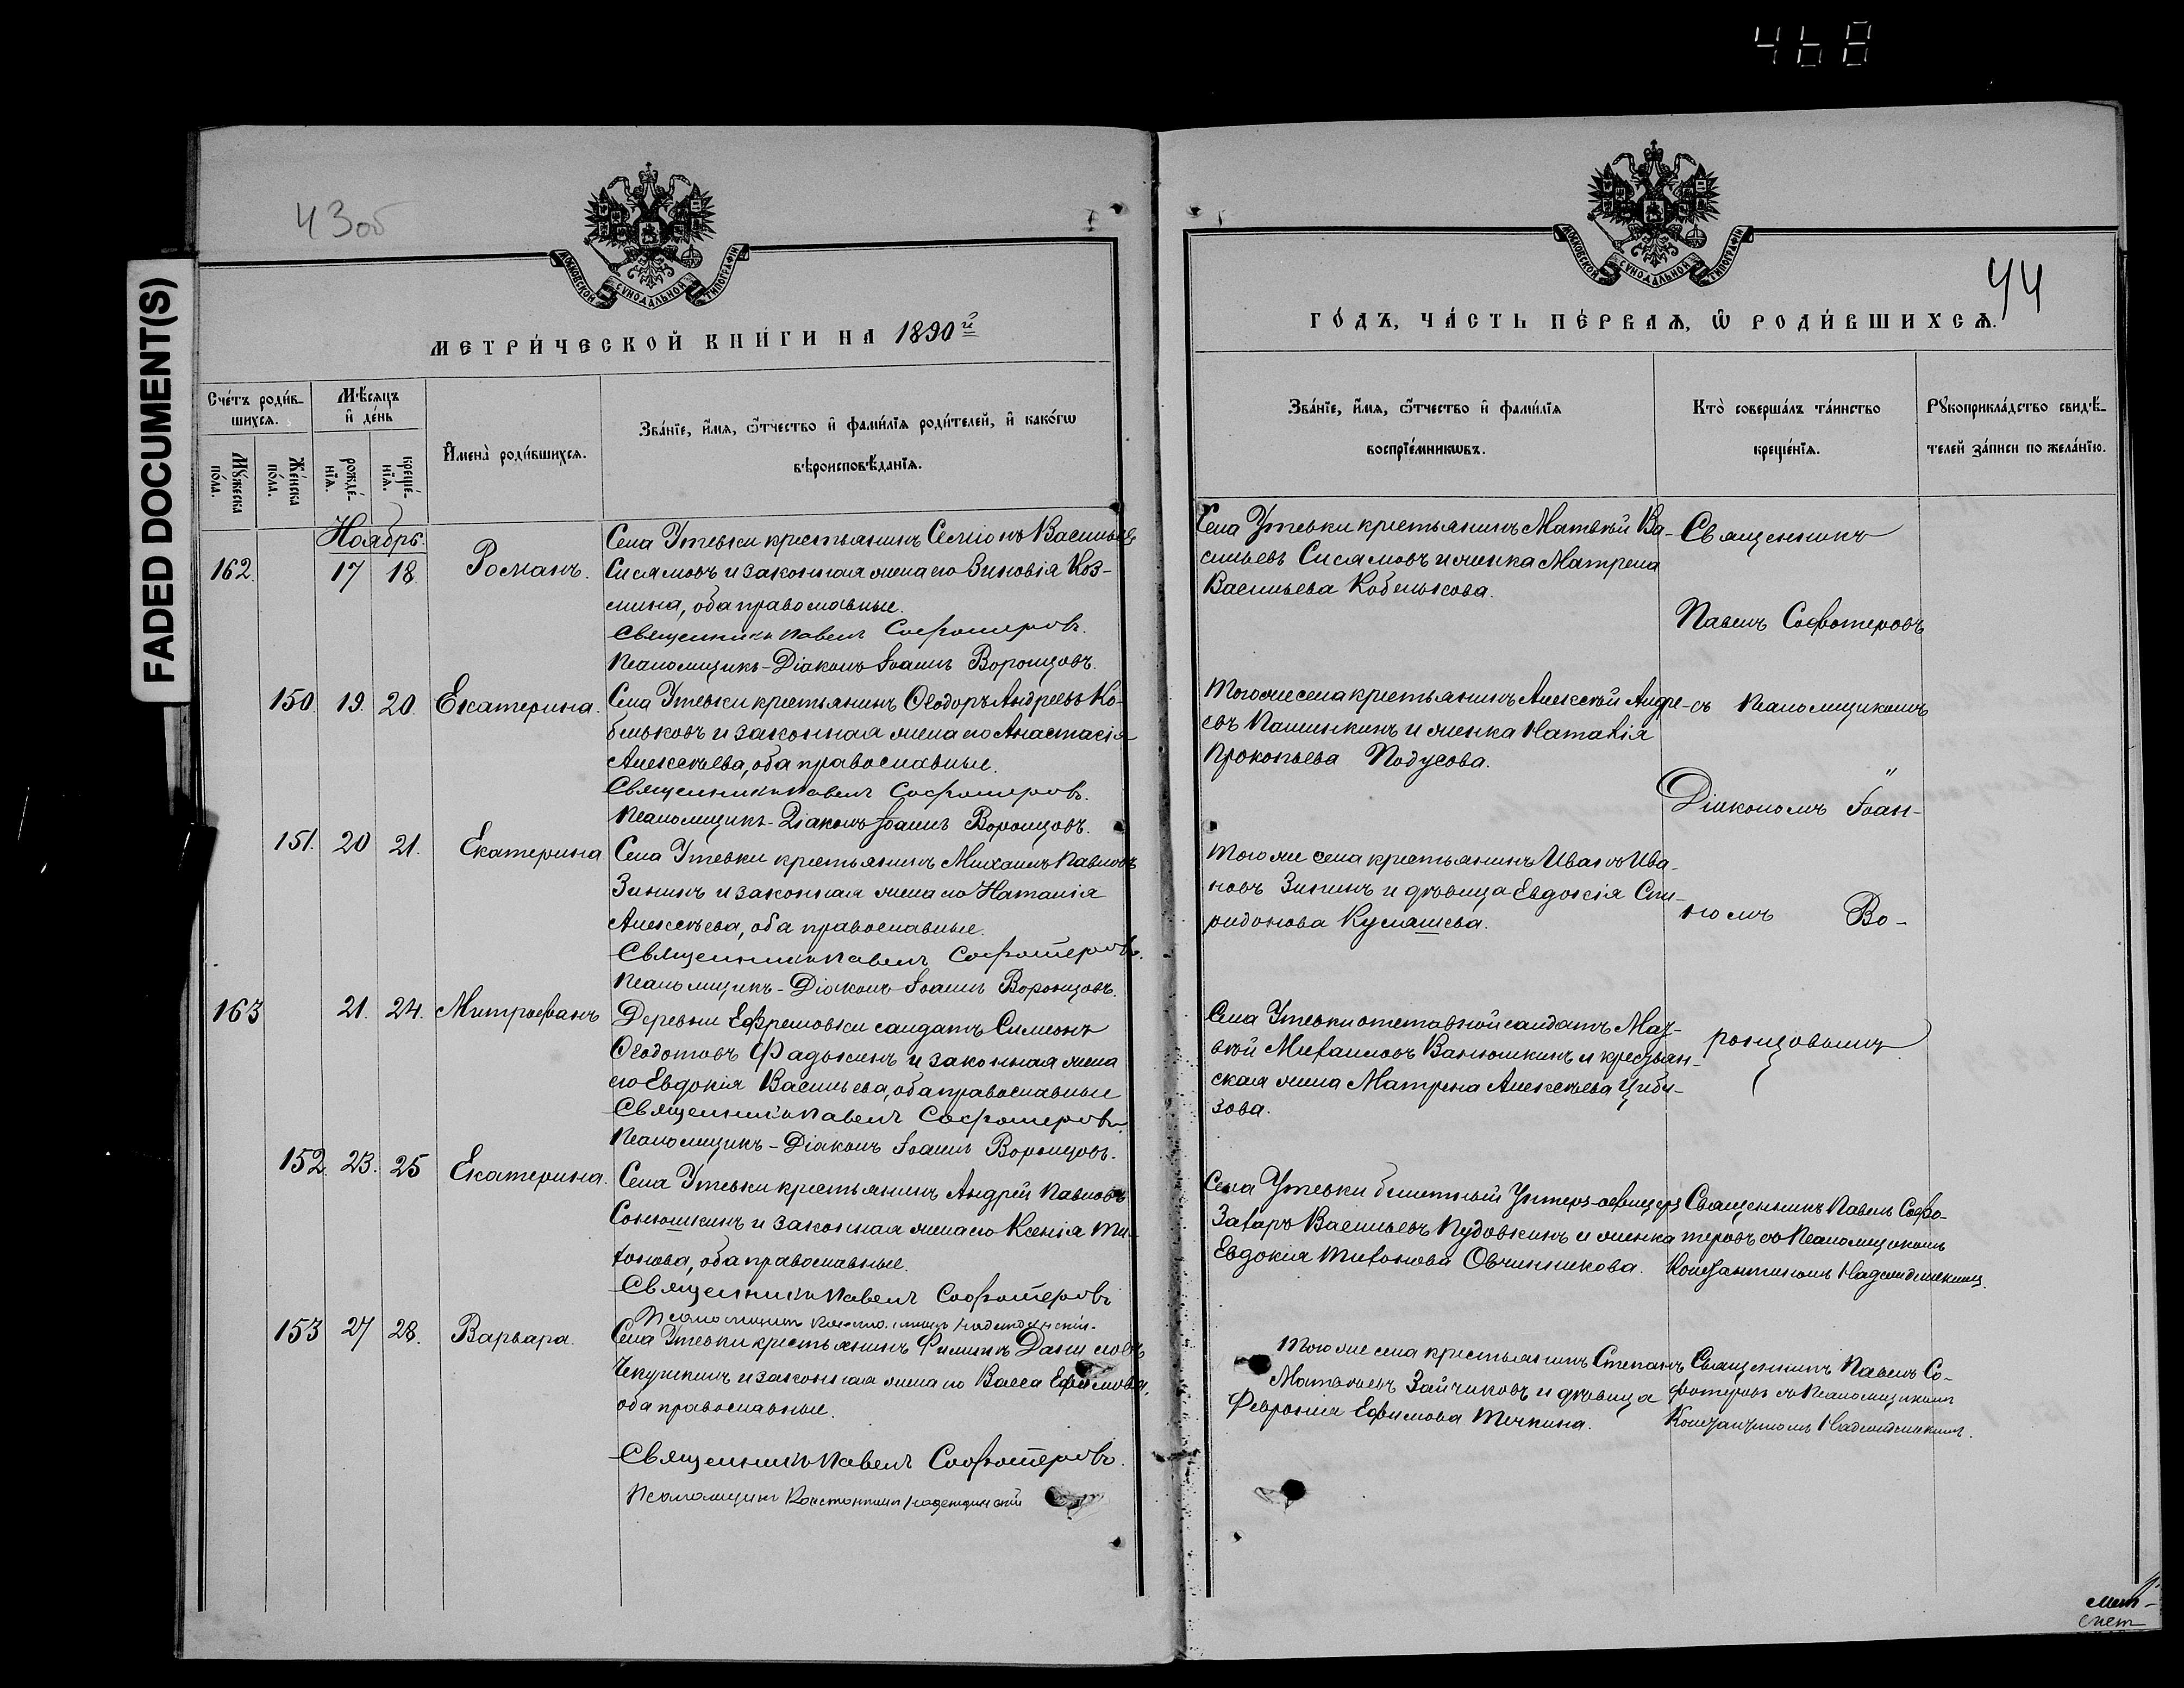 468
FADED DOCUMENT(S)
43об
МОСКОВСКОЙ СУНОДАЛЬНОЙ ТИПОГРАФІИ
МЕТРИ́ЧЕСКОЙ КНИ́ГИ НА 1890й
Сче́тъ роди́в-
шихся.
Мѣ́сяцъ
и҆ де́нь
Мꙋ́жеска
по́ла.
Же́нска
по́ла.
рожде́-
нїя.
креще́-
нїя.
И҆мена̀ роди́вшихся.
Зва́нїе, и҆́мя, ѻ҆́тчество и҆ фами́лїя роди́телей, и҆ како́гѡ
вѣроисповѣ́данїя.
Ноябрь.
162. 17 18. Романъ.
Села Утевки крестьянинъ Семіонъ Васильевъ
Сисямовъ и законная жена его Зиновія Коз-
мина, оба православные.
Священникъ Павелъ Софотеровъ.
Псаломщикъ-Діаконъ Іоаннъ Воронцовъ.
150. 19. 20. Екатерина.
Села Утевки крестьянинъ Ѳеодоръ Андреевъ Ко-
бельковъ и законная жена его Анастасія
Алексѣева, оба православные.
Священникъ Павелъ Софотеровъ.
Псаломщикъ-Діаконъ Іоаннъ Воронцовъ.
151. 20 21. Екатерина.
Села Утевки крестьянинъ Михаилъ Павловъ
Зининъ и законная жена его Наталія
Алексѣева, оба православные.
Священникъ Павелъ Софотеровъ.
Псаломщикъ-Діаконъ Іоаннъ Воронцовъ.
163 21. 24. Митрофанъ
Деревни Ефремовки солдатъ Симеонъ
Ѳеодотовъ Фадькинъ и законная жена
его Евдокія Васильева, оба православные
Священникъ Павелъ Софотеровъ.
Псаломщикъ-Діаконъ Іоаннъ Воронцовъ.
152. 23. 25 Екатерина.
Села Утевки крестьянинъ Андрей Павловъ
Сонюшкинъ и законная жена его Ксенія Ти-
хонова, оба православные.
Священникъ Павелъ Софотеровъ
Псаломщикъ Константинъ Надеждинскій.
153 27 28. Варвара.
Села Утевки крестьянинъ Филиппъ Даниловъ
Чекушкинъ и законная жена его Васса Ефимова,
оба православные.
Священникъ Павелъ Софотеровъ.
Псаломщикъ Константинъ Надеждинскій
МОСКОВСКОЙ СУНОДАЛЬНОЙ ТИПОГРАФІИ
44
ГО́ДЪ, ЧА́СТЬ ПЕ́РВАЯ, Ѽ РОДИ́ВШИХСЯ.
Зва́нїе, и҆́мя, ѻ҆́тчество и҆ фами́лїя
воспрїе́мникѡвъ.
Кто̀ соверша́лъ та́инство
креще́нїя.
Рꙋкоприкла́дство свидѣ́-
телей за́писи по жела́нїю.
Села Утевки крестьянинъ Матвѣй Ва-
сильевъ Сисямовъ и женка Матрена
Васильева Кобелькова.
Священникъ
Павелъ Софотеровъ
Того же села крестьянинъ Алексѣй Андре-
евъ Пашинкинъ и женка Наталія
Прокопьева Подусова.
съ Псаломщикомъ
Діакономъ Іоан-
Того же села крестьянинъ Иванъ Ива-
новъ Зининъ и дѣвица Евдокія Спи-
ридонова Кулашева.
номъ Во-
Села Утевки отставной солдатъ Мат-
вѣй Михайловъ Ванюшкинъ и крестьян-
ская жена Матрена Алексѣева Циби-
зова.
ронцовымъ
Села Утевки билетный Унтеръ-офицеръ
Захаръ Васильевъ Пудовкинъ и женка
Евдокія Тихонова Овчинникова.
Священникъ Павелъ Софо-
теровъ съ Псаломщикомъ
Константиномъ Надеждинскимъ.
Того же села крестьянинъ Степанъ
Матвѣевъ Зайчиковъ и дѣвица
Февронія Ефимова Тычкина.
Священникъ Павелъ Со-
фотеровъ съ Псаломщикомъ
Константиномъ Надеждинскимъ.